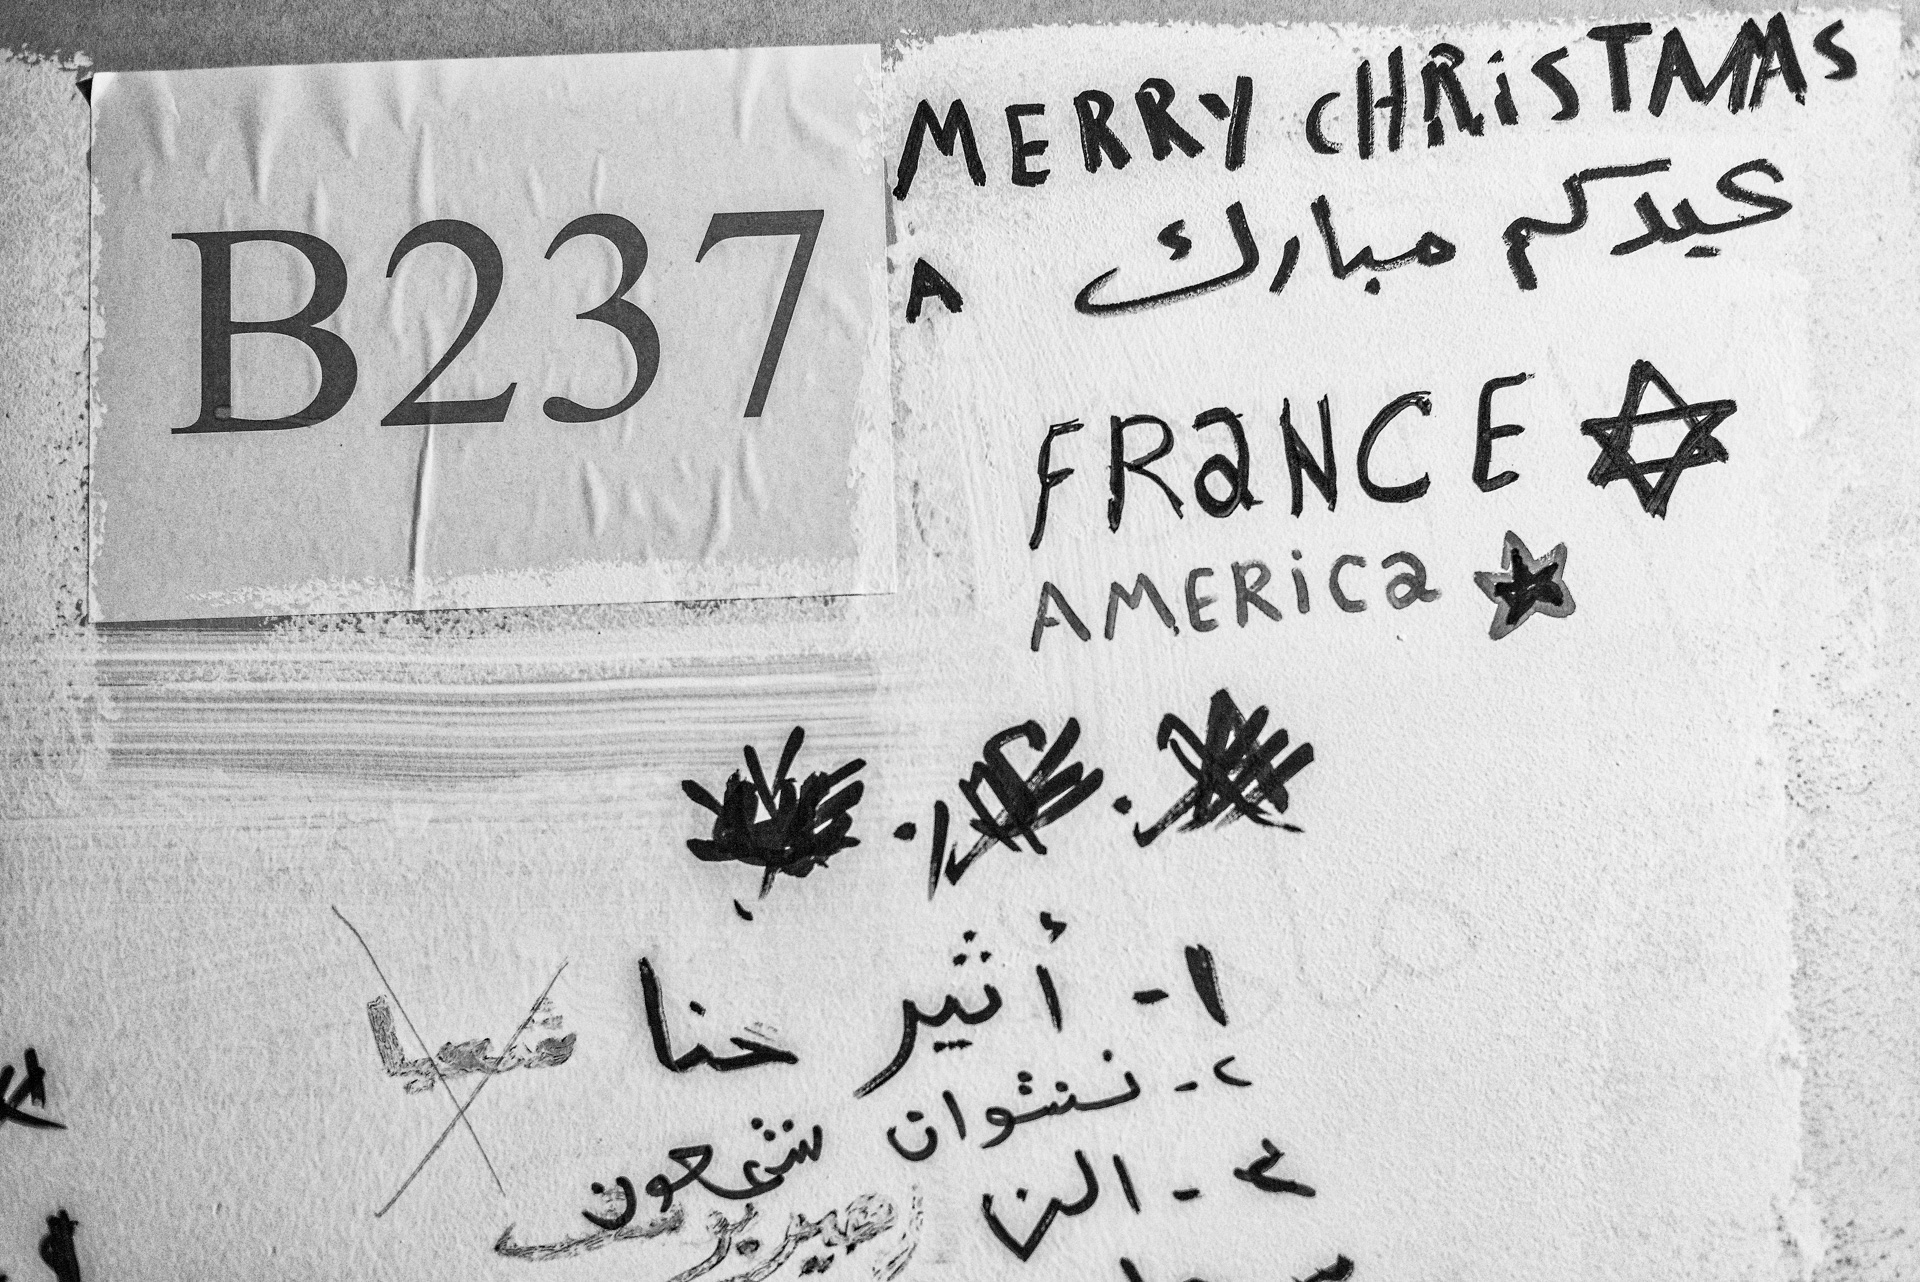 B237
MERRY CHRISTMAS
عيدكم مبارك
A
FRANCE
AMERICA
١- أثير حنا
٢- نشوان شمعون